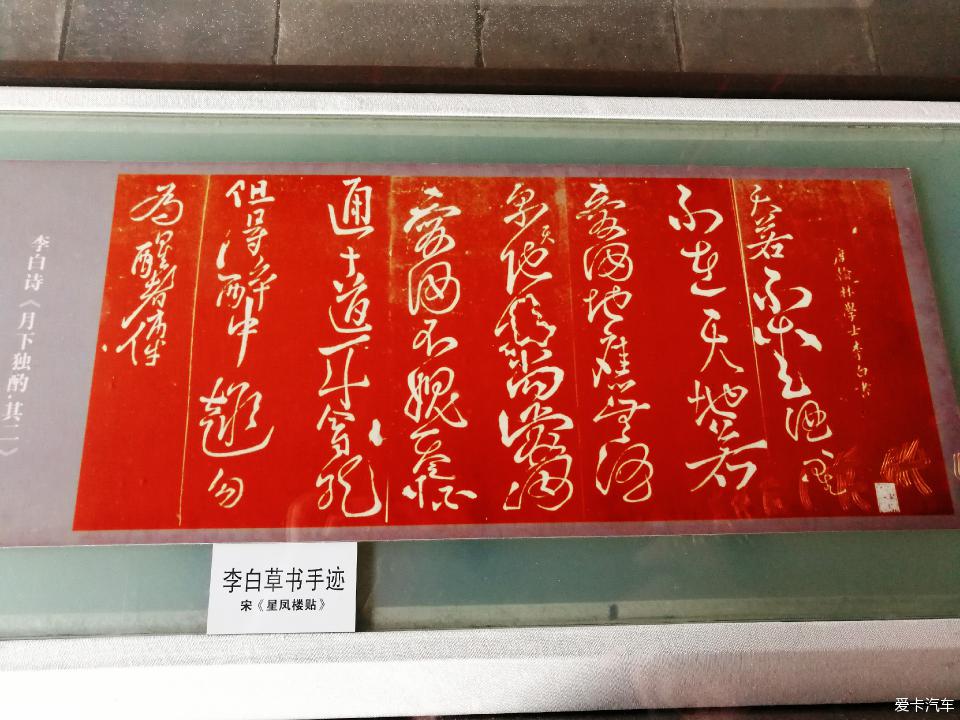 唐翰林學士李白書
天若不愛酒星
不在天地若
愛酒地應無酒
泉天地
愛酒不愧
通道一斗合自
但得醉中趣勿
為醒者傳
李白诗《月下独酌·其二》
李白草书手迹
宋《星凤楼贴》
爱卡汽车